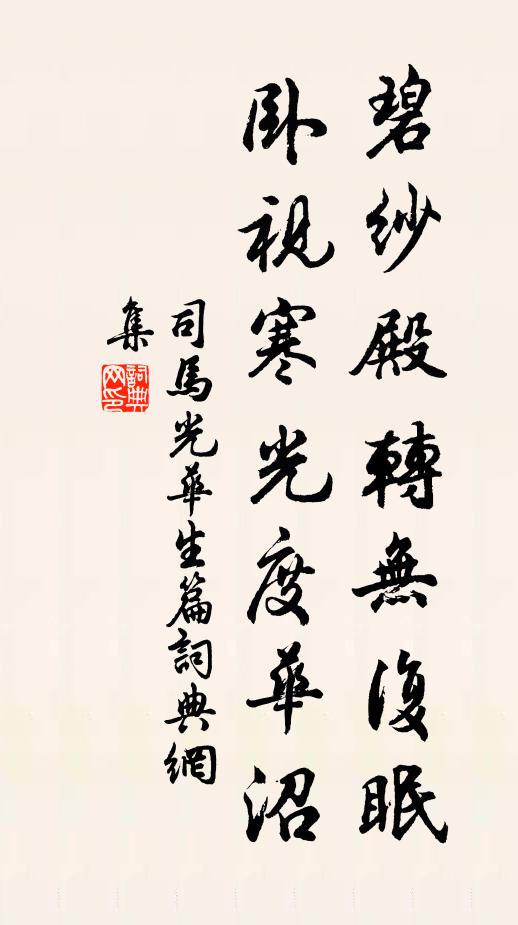 碧紗殿轉無復眠
臥視寒光度華沼
司馬光華生篇詞典網
集
詞典
网印